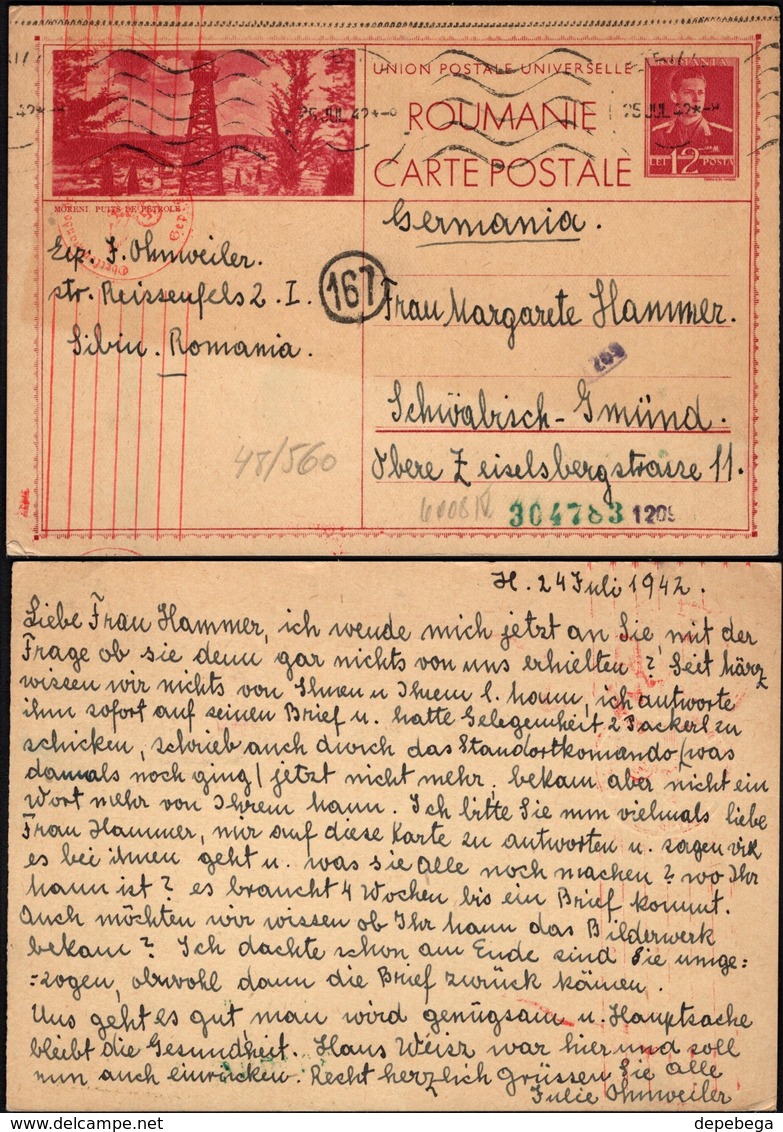 UNION POSTALE UNIVERSELLE
ROUMANIE
CARTE POSTALE
25 JUL 42
25 JUL 42
LEI 12 POSTA
MORENI PUITS DE PÉTROLE
Germania.
Exp. J. Ohnweiler.
str. Reissenfels 2. I.
Sibiu. Romania.
167
Frau Margarete Hammer.
209
Schwäbisch-Gmünd.
Obere Zeiselsbergstrasse 11.
48/560
304783 1209
H. 24 Juli 1942.
Liebe Frau Hammer, ich wende mich jetzt an Sie mit der
Frage ob sie denn gar nichts von uns erhielten? Seit März
wissen wir nichts von Ihnen u Ihrem l. Mann, ich antworte
ihm sofort auf seinen Brief u. hatte Gelegenheit 2 Packerl zu
schicken, schrieb auch durch das Standortkomando (was
damals noch ging) jetzt nicht mehr, bekam aber nicht ein
Wort mehr von Ihrem Mann. Ich bitte Sie nun vielmals liebe
Frau Hammer, mir auf diese Karte zu antworten u. sagen wie
es bei ihnen geht u. was sie Alle noch machen? wo Ihr
Mann ist? es braucht 4 Wochen bis ein Brief kommt.
Auch möchten wir wissen ob Ihr Mann das Bilderwerk
bekam? Ich dachte schon am Ende sind Sie umge=
=zogen, obwohl dann die Brief zurück kämen.
Uns geht es gut, man wird genügsam u. Hauptsache
bleibt die Gesundheit. Hans Weisz war hier und soll
nun auch einrücken. Recht herzlich Grüssen Sie Alle
Julie Ohnweiler
depebega